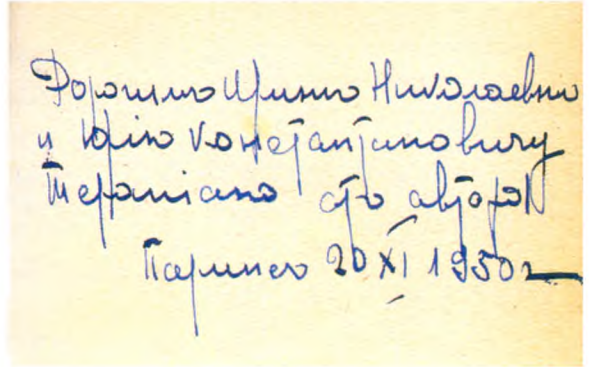 Дорогимъ Иринѣ Николаевнѣ
и Юрію Константиновичу
Терапіано отъ автора
Парижъ 20 XI 1950 г